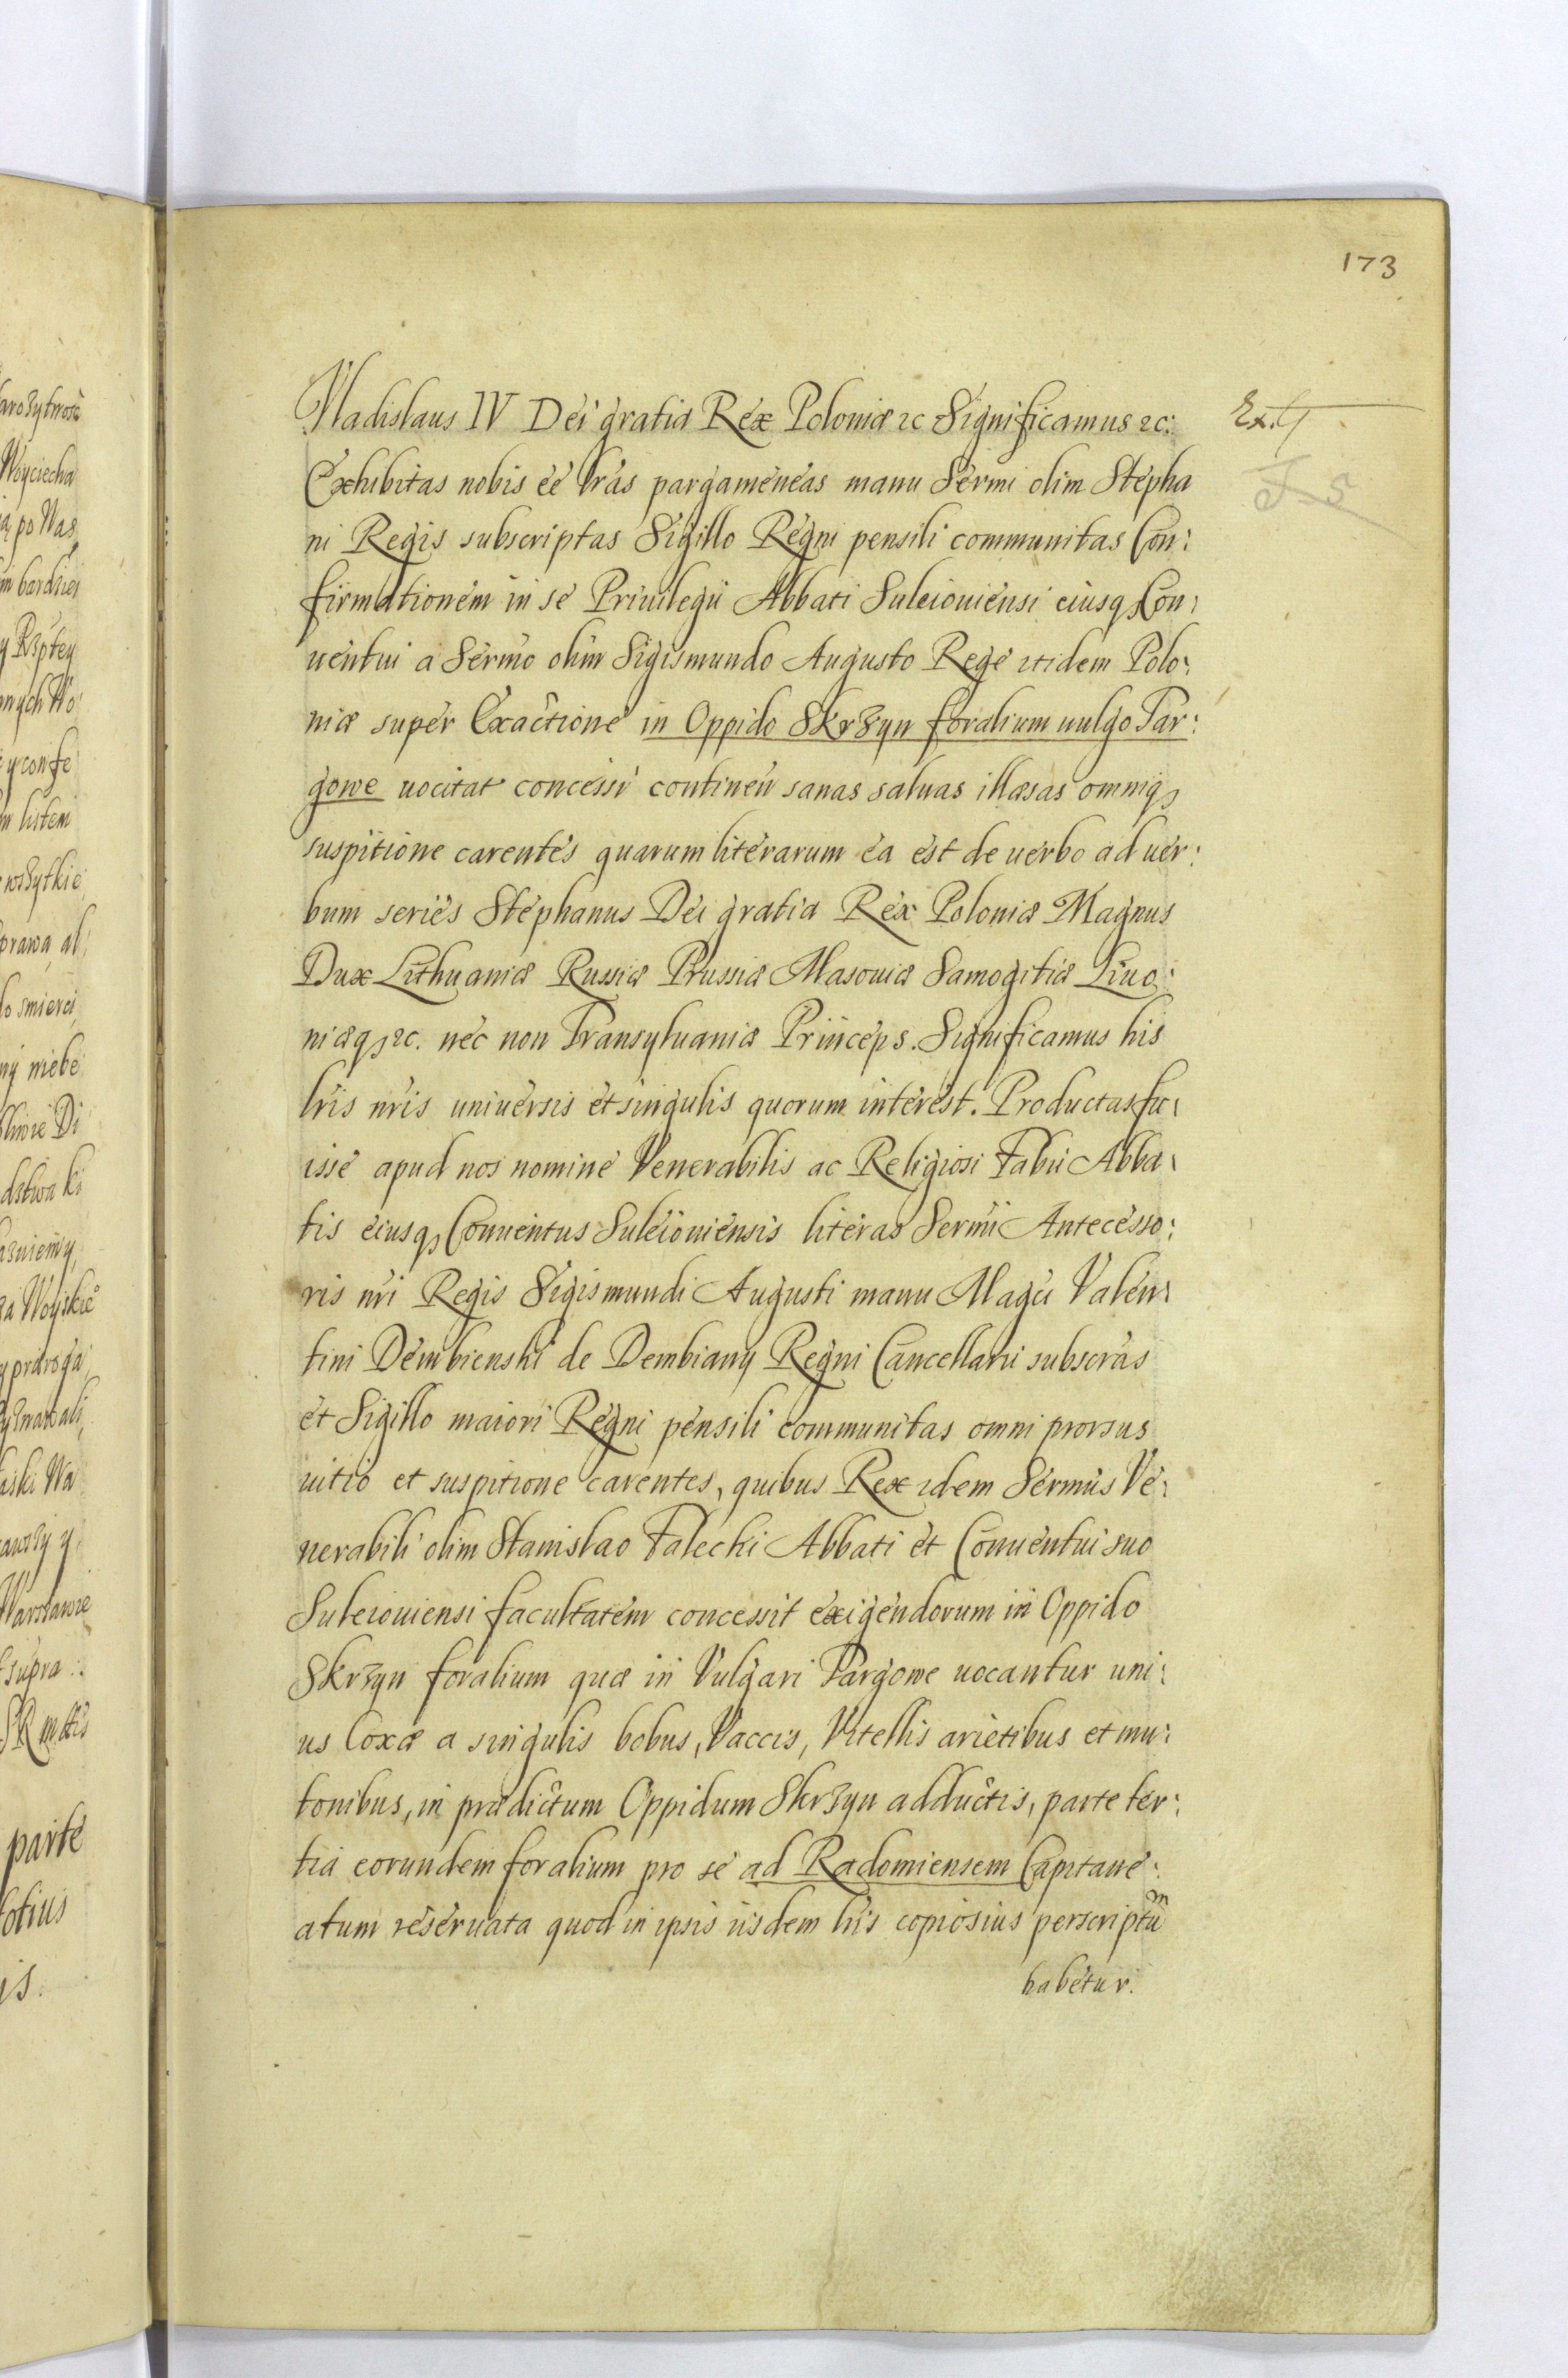 173
Vladislaus IV Dei gratia Rex Poloniæ &c Significamus &c:
Exhibitas nobis eẽ lrãs pargameneas manu Sermi olim Stepha
ni Regis subscriptas Sigillo Regni pensili communitas Con:
firmationem in se Priuilegii Abbati Suleiouiensi eiusq₃ Con:
uentui a Sermo olim Sigismundo Augusto Rege itidem Polo:
niæ super Exactione in Oppido Skrzyn foralium uulgo Tar:
gowe uocitat concessi continen sanas saluas illæsas omniq₃
suspitione carentes quarum literarum ea est de uerbo ad uer:
bum series Stephanus Dei gratia Rex Poloniæ Magnus
Dux Lithuaniæ Russiæ Prussiæ Masouiæ Samogitiæ Liuo:
niæq₃ &c. nec non Transyluaniæ Princeps. Significamus his
lris nris uniuersis et singulis quorum interest. Productas fu:
isse apud nos nomine Venerabilis ac Religiosi Fabii Abba:
tis eiusq₃ Conuentus Suleiouiensis literas Sermi Antecesso:
ris nri Regis Sigismundi Augusti manu Magci Valen:
tini Dembienski de Dembiany Regni Cancellarii subscras
et Sigillo maiori Regni pensili communitas omni prorsus
uitio et suspitione carentes, quibus Rex idem Sermus Ve:
nerabili olim Stanislao Falecki Abbati et Conuentui suo
Suleiouiensi facultatem concessit exigendorum in Oppido
Skrzyn foralium quæ in Vulgari Targowe uocantur uni:
us Coxæ a singulis bobus, Vaccis, Vitellis arietibus et mu:
tonibus, in prædictum Oppidum Skrzyn adductis, parte ter:
tia eorundem foralium pro se ad Radomiensem Capitane:
atum reseruata quod in ipsis iisdem lris copiosius perscriptũm
habetur.